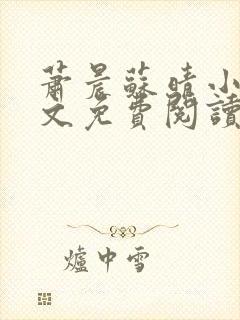 蕭晨蘇晴小
文免費閱讀
爐中雪